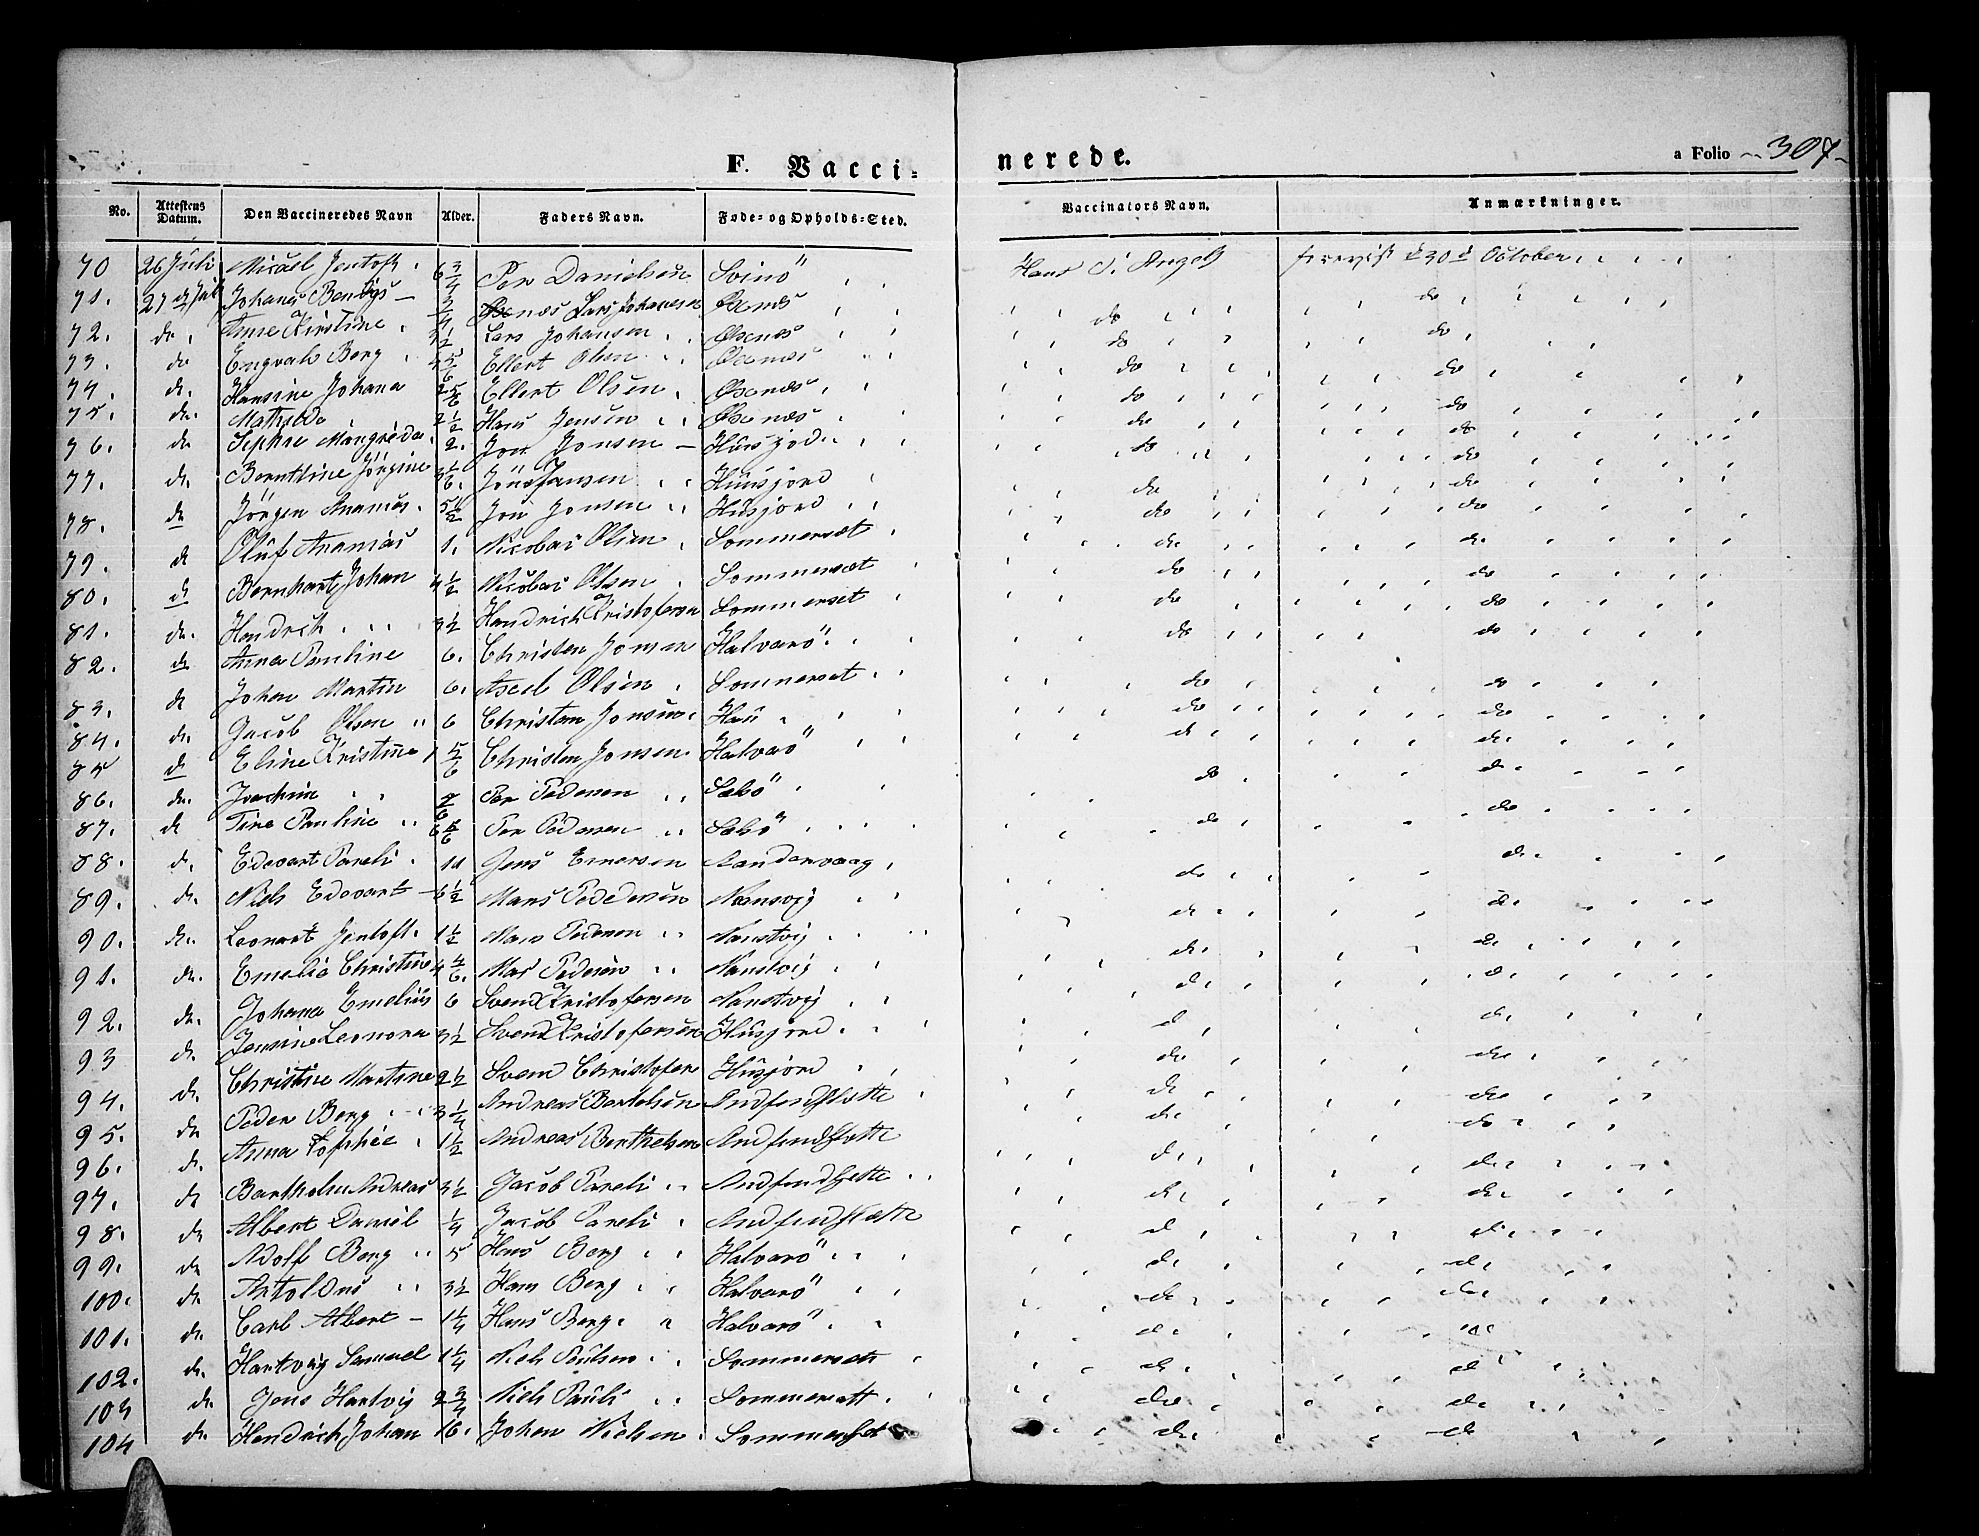 F. Vaccinerede. a Folio 307
No. Attestens Datum. Den Vaccineredes Navn Alder. Faders Navn. Føde- og Opholds-Sted. Vaccinators Navn. Anmærkninger.
70 26 Juli Micael Jentoft 6 3/4 Per Danielsen Svinö Hans S. Angell forevist d 30 d October
71. 27 d Juli Johanes Bendigs 3/4 Lars Johansen Øxnes do do
72. do Anne Kirstine 3 1/2 Lars Johansen Øxnes do do
73. do Engvals Berg 4 5/6 Ellert Olsen Øxnes do do
74. do. Hansine Johana 2 5/6 Ellert Olsen Øxnes do do
75. do. Mathilde 2 1/2 Hans Jensen Øxnes do do
76. do Sophie Margrēde 2. Jon Jonsen Husjord do do
77. do. Berntine Jörgine 3 1/6. Jon Jansen Husjord do do
78. do Jörgen Ananias 5 1/2 Jon Jonsen Husjord do do
79. do Oluf Ananias 1. Nicobai Olsen Sommerset do do
80. do Bernhart Johan 4 1/2 Nicobai Olsen Sommerset do do
81. do. Hendrich 3 1/2 Hendrich Kristofersen Sommerset do do
82. do Anna Pauline 6. Christen Jonsen Halvarö do do
83. do Johan Martin 6. Axel Olsen Sommerset do do
84. do. Jacob Olsen 6 Christen Jonsen Hau do do
85 do Eline Kristine 1 5/6 Christen Jonsen Halvarö do do
86. do. Joachim Per Pedersen Skbö do do
87. do Tine Pauline 6 5/6 Per Pedersen Skbö do do
88. do. Edevart Pareli 11 Jens Emersen Sandervaag do do
89. do. Niels Edevart 6 1/2 Mons Pedersen Nansvig do do
90. do. Leonart Jentoft 1 1/2 Mons Pedersen Nanstvig do do
91. do. Emelie Christine 4 4/6. Mas Pedersen Nanstvig do do
92. do. Johana Emelius 6 Svend Kristofersen Nanstvig do do
93 do. Jensine Leonora 3 1/2 Svend Kristofersen Husjord do do
94. do. Christine Martine 2 1/2 Svend Christofers Husjord do do
95. do Peder Berg 3 1/4 Andreas Bertelsen do do
96. do. Anna Sophie 1 1/2 Andreas Berthelsen do do
97. do Barthelm Andreas 3 1/2 Jacob Pareli do do
98. do Albert Daniel 1/4 Jacob Pareli do do
99. do Adolf Berg 5 Hans Berg Halvarö do do
100. do Artoldus 3 1/2 Hans Berg Halvarö do do
101. do. Carl Albert 1 1/4 Hans Berg Halvarö do do
102. do. Hartvig Samuel 1 1/4 Niels Poulsen Sommerset do do
103 do. Jens Hartvig 2 3/4 Niels Pauls Sommersett do do
104 do. Hendrich Johan 16. Johan Nielsen Sommerset do do